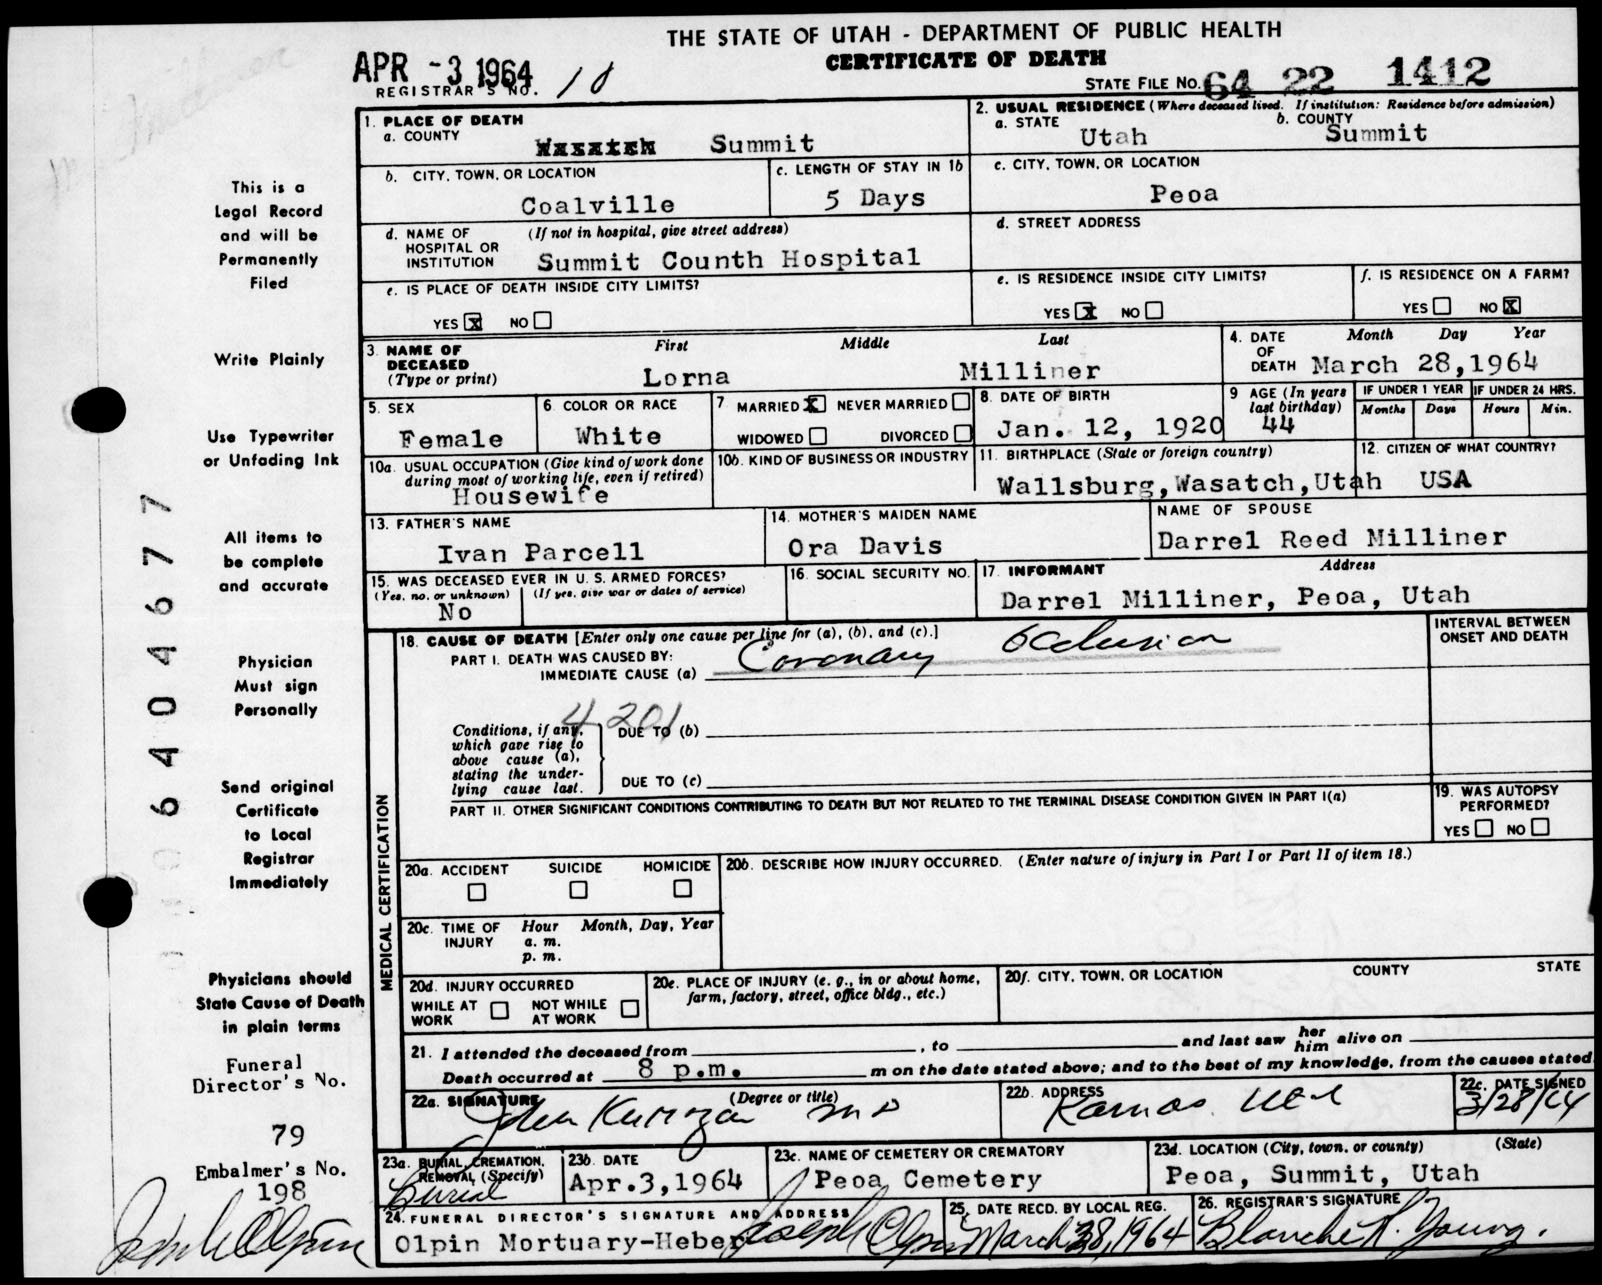 THE STATE OF UTAH - DEPARTMENT OF PUBLIC HEALTH
CERTIFICATE OF DEATH
APR -3 1964
REGISTRAR'S NO. 18
STATE FILE NO. 64 22 1412
1. PLACE OF DEATH
a. COUNTY
Wasatch Summit
2. USUAL RESIDENCE (Where deceased lived. If institution: Residence before admission)
a. STATE
Utah
b. COUNTY
Summit
b. CITY, TOWN, OR LOCATION
Coalville
c. LENGTH OF STAY IN 1b
5 Days
c. CITY, TOWN, OR LOCATION
Peoa
d. NAME OF HOSPITAL OR INSTITUTION
(If not in hospital, give street address)
Summit Counth Hospital
d. STREET ADDRESS
e. IS PLACE OF DEATH INSIDE CITY LIMITS?
YES X NO
e. IS RESIDENCE INSIDE CITY LIMITS?
YES X NO
f. IS RESIDENCE ON A FARM?
YES NO X
3. NAME OF DECEASED (Type or print)
First Middle Last
Lorna Milliner
4. DATE OF DEATH
Month Day Year
March 28,1964
5. SEX
Female
6 COLOR OR RACE
White
7 MARRIED X NEVER MARRIED
WIDOWED DIVORCED
8. DATE OF BIRTH
Jan. 12, 1920
9 AGE (In years last birthday)
44
IF UNDER 1 YEAR
Months Days
IF UNDER 24 HRS.
Hours Min.
10a. USUAL OCCUPATION (Give kind of work done during most of working life, even if retired)
Housewife
10b. KIND OF BUSINESS OR INDUSTRY
11. BIRTHPLACE (State or foreign country)
Wallsburg,Wasatch,Utah
12. CITIZEN OF WHAT COUNTRY?
USA
13. FATHER'S NAME
Ivan Parcell
14. MOTHER'S MAIDEN NAME
Ora Davis
NAME OF SPOUSE
Darrel Reed Milliner
15. WAS DECEASED EVER IN U. S. ARMED FORCES?
(Yes, no, or unknown) (If yes, give war or dates of service)
No
16. SOCIAL SECURITY NO.
17. INFORMANT Address
Darrel Milliner, Peoa, Utah
MEDICAL CERTIFICATION
18. CAUSE OF DEATH [Enter only one cause per line for (a), (b), and (c).]
PART I. DEATH WAS CAUSED BY:
IMMEDIATE CAUSE (a) Coronary Occlusion
INTERVAL BETWEEN ONSET AND DEATH
4201
Conditions, if any, which gave rise to above cause (a), stating the underlying cause last.
DUE TO (b)
DUE TO (c)
PART II. OTHER SIGNIFICANT CONDITIONS CONTRIBUTING TO DEATH BUT NOT RELATED TO THE TERMINAL DISEASE CONDITION GIVEN IN PART I(a)
19. WAS AUTOPSY PERFORMED?
YES NO
20a. ACCIDENT SUICIDE HOMICIDE
20b. DESCRIBE HOW INJURY OCCURRED. (Enter nature of injury in Part I or Part II of item 18.)
20c. TIME OF INJURY
Hour Month, Day, Year
a. m.
p. m.
20d. INJURY OCCURRED
WHILE AT WORK NOT WHILE AT WORK
20e. PLACE OF INJURY (e. g., in or about home, farm, factory, street, office bldg., etc.)
20f. CITY, TOWN, OR LOCATION COUNTY STATE
21. I attended the deceased from , to and last saw her him alive on
Death occurred at 8 p.m. m on the date stated above; and to the best of my knowledge, from the causes stated.
22a. SIGNATURE (Degree or title)
MD
22b. ADDRESS
Kamas Utah
22c. DATE SIGNED
3/28/64
23a. BURIAL, CREMATION, REMOVAL (Specify)
Burial
23b. DATE
Apr.3,1964
23c. NAME OF CEMETERY OR CREMATORY
Peoa Cemetery
23d. LOCATION (City, town, or county) (State)
Peoa, Summit, Utah
24. FUNERAL DIRECTOR'S SIGNATURE AND ADDRESS
Olpin Mortuary-Heber Joseph Olpin
25. DATE RECD. BY LOCAL REG.
March 28, 1964
26. REGISTRAR'S SIGNATURE
Blanche R. Young.
This is a
Legal Record
and will be
Permanently
Filed
Write Plainly
Use Typewriter
or Unfading Ink
All items to
be complete
and accurate
Physician
Must sign
Personally
Send original
Certificate
to Local
Registrar
Immediately
Physicians should
State Cause of Death
in plain terms
Funeral
Director's No.
79
Embalmer's No.
198
6404677